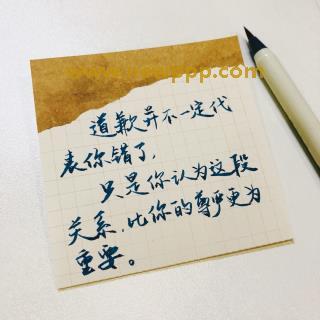 道歉并不一定代
表你错了，
只是你认为这段
关系，比你的尊严更为
重要。